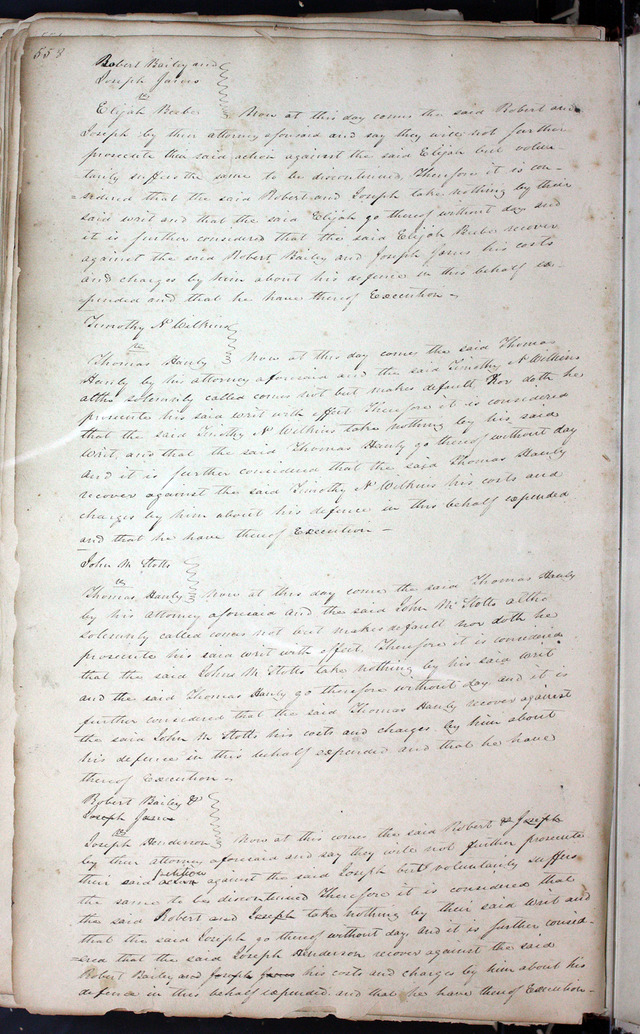 558
Robert Bailey and
Joseph Jarvis
vs
Elijah Beebe Now at this day comes the said Robert and
Joseph by their attorney aforesaid and say they will not further
prosecute their said action against the said Elijah but volun-
tarily suffer the same to be discontinued, Therefore it is con-
sidered that the said Robert and Joseph take nothing by their
said writ and that the said Elijah go thereof without day and
it is further considered that the said Elijah Beebe recover
against the said Robert Bailey and Joseph Jarvis his costs
and charges by him about his defence in this behalf ex-
pended and that he have thereof Execution -
Timothy N Wilkins
vs
Thomas Hanly Now at this day comes the said Thomas
Hanly by his attorney aforesaid and the said Timothy N Wilkins
altho solemnly called comes not but makes default Nor doth he
prosecute his said writ with effect Therefore it is considered
that the said Timothy N Wilkins take nothing by his said
Writ, and that the said Thomas Hanly go thereof without day
and it is further considered that the said Thomas Hanly
recover against the said Timothy N Wilkins his costs and
charges by him about his defence in this behalf expended
and that he have thereof Execution -
John M Stotts
vs
Thomas Hanly Now at this day come the said Thomas Hanly
by his attorney aforesaid and the said John M Stotts altho
solemnly called comes not but makes default nor doth he
prosecute his said writ with effect. Therefore it is considered
that the said Johns M. Stotts take nothing by his said writ
and the said Thomas Hanly go therefore without day and it is
further considered that the said Thomas Hanly recover against
the said John M Stotts his costs and charges by him about
his defence in this behalf expended and that he have
thereof Execution -
Robert Bailey &
Joseph Jarvis
vs
Joseph Henderson Now at this comes the said Robert & Joseph
by their attorney aforesaid and say they will not further prosecute
petition
their said action against the said Joseph but voluntarily suffers
the same to be discontinued Therefore it is considered that
the said Robert and Joseph take nothing by their said writ and
that the said Joseph go thereof without day and it is further consid-
ered that the said Joseph Henderson recover against the said
Robert Bailey and Joseph Jarvis his costs and charges by him about his
defence in this behalf expended and that he have thereof Execution -